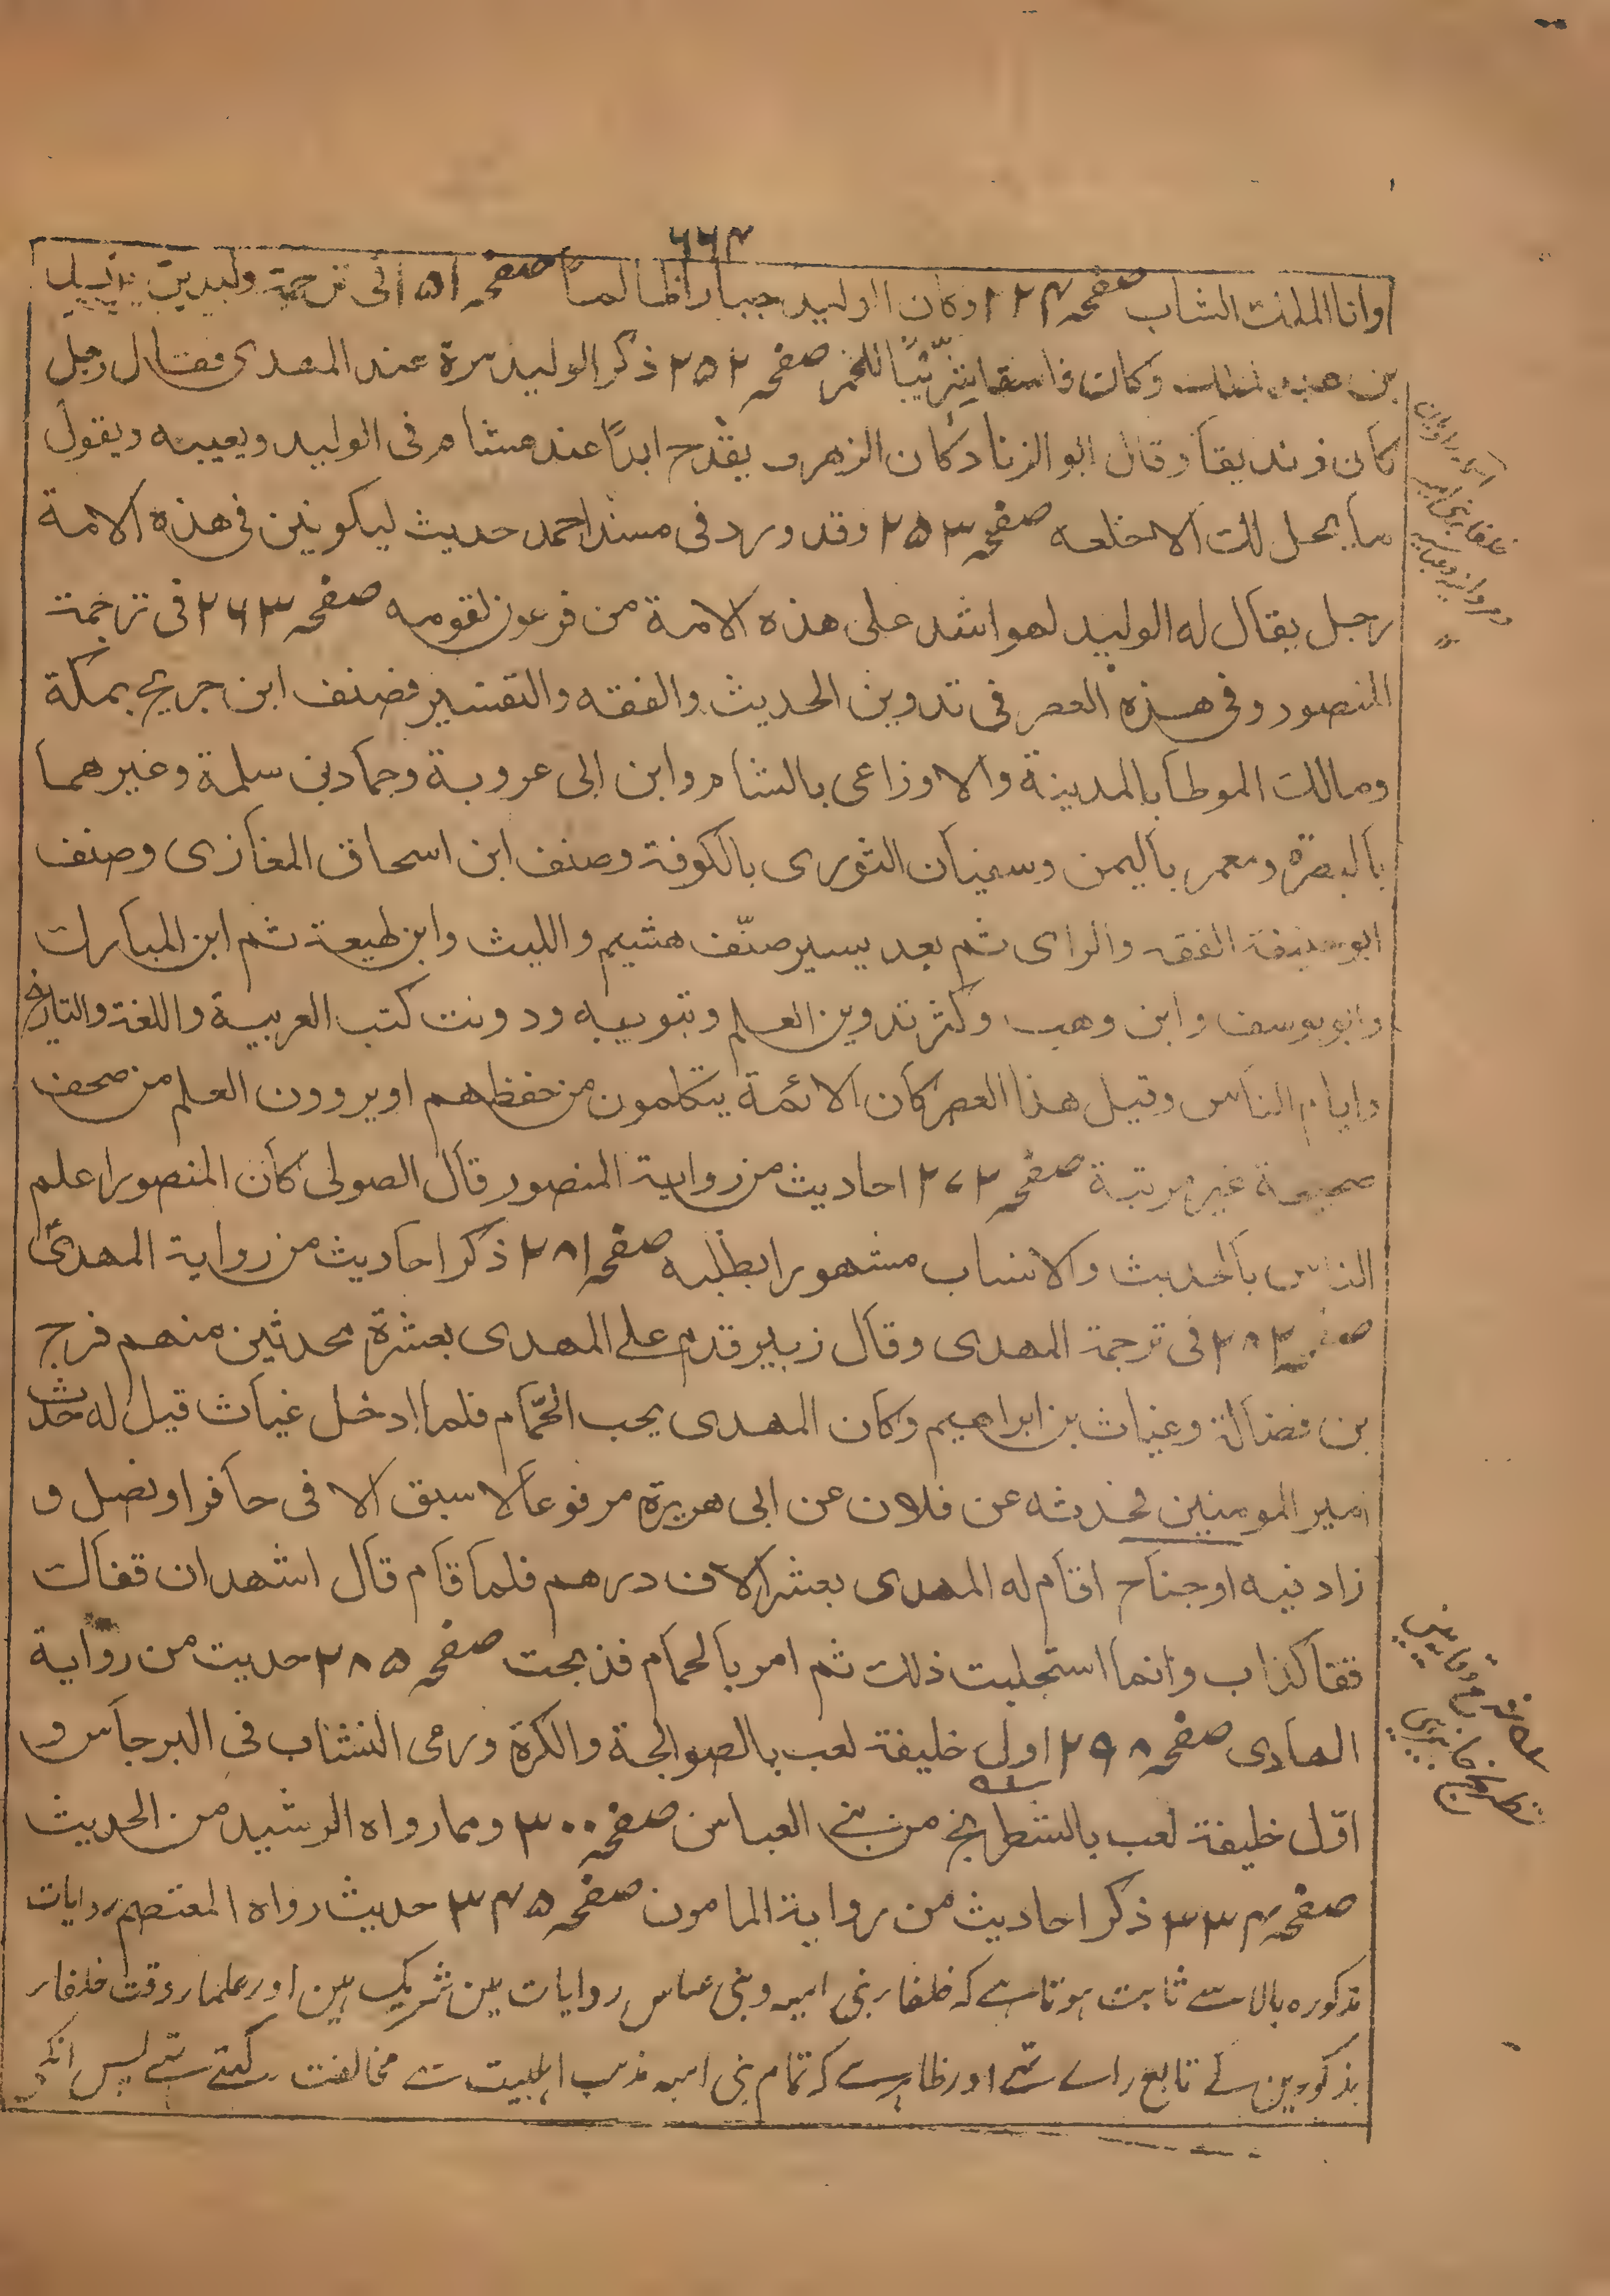 ٦٦٤
وانا الملك الشاب صفحہ ٢٢٤ وكان الوليد جبارا ظالما صفحہ ٢٥١ فى ترجمة وليد بن يزيد
بن عبد الملك وكان فاسقا شرّيبًا للخمر صفحہ ٢٥٢ ذكر الوليد مرة عند المهدى فقال رجل
كان زنديقا وقال ابو الزناد كان الزهرى يقدح ابدًا عند هشام فى الوليد ويعيبه ويقول
ما يحل لك الا خلعه صفحہ ٢٥٣ وقد ورد فى مسند احمد حديث ليكونن فى هذه الامة
رجل يقال له الوليد لهو اشد على هذه الامة من فرعون لقومه صفحہ ٢٦٣ فى ترجمة
المنصور وفى هذه العصر فى تدوين الحديث والفقه والتفسير فصنف ابن جريج بمكة
ومالك الموطا بالمدينة والاوزاعى بالشام وابن ابى عروبة وحماد بن سلمة وغيرهما
بالبصرة ومعمر باليمن وسفيان الثورى بالكوفة وصنف ابن اسحاق المغازى وصنف
ابو حنيفة الفقه والراى ثم بعد يسير صنّف هشيم والليث وابن لهيعة ثم ابن المبارك
وابو يوسف وابن وهب وكثر تدوين العلم وتبويبه ودونت كتب العربية واللغة والتاريخ
وايام الناس وقبل هذا العصر كان الائمة يتكلمون من حفظهم او يروون العلم من صحف
صحيحة غير مرتبة صفحہ ٢٧٢ احاديث من رواية المنصور قال الصولى كان المنصور اعلم
الناس بالحديث والانساب مشهورا بطلبه صفحہ ٢٨١ ذكر احاديث من رواية المهدى
صفحہ ٢٨٢ فى ترجمة المهدى وقال زبير قدم على المهدى بعشرة محدثين منهم فرج
بن فضالة وغياث بن ابراهيم وكان المهدى يحب الحمّام فلما ادخل غياث قيل له حدث
امير المومنين فحدثه عن فلان عن ابى هريرة مرفوعا لا سبق الا فى حافر او نصل و
زاد فيه او جناح اقام له المهدى بعشر الاف درهم فلما قام قال اشهد ان قفاك
قفا كذاب وانما استجلبت ذلك ثم امر بالحمام فذبحت صفحہ ٢٨٥ حديث من رواية
الهادى صفحہ ٢٩٨ اول خليفة لعب بالصوالجة والكرة ورمى النشاب فى البرجاس و
اوّل خليفة لعب بالشطرنج من بنى العباس صفحہ ٣٠٠ ومما رواه الرشيد من الحديث
صفحہ ٣٣٤ ذكر احاديث من رواية المامون صفحہ ٣٤٥ حديث رواه المعتصم روايات
مذکورہ بالا سے ثابت ہوتا ہے کہ خلفاء بنی امیہ و بنی عباس روایات میں شریک ہیں اور علماء وقت خلفاء
مذکورین کے تابع راے تھے اور ظاہر ہے کہ تمام بنی امیہ مذہب اہلبیت سے مخالفت رکھتے تھے پس انکے
خلفاء بنی امیہ